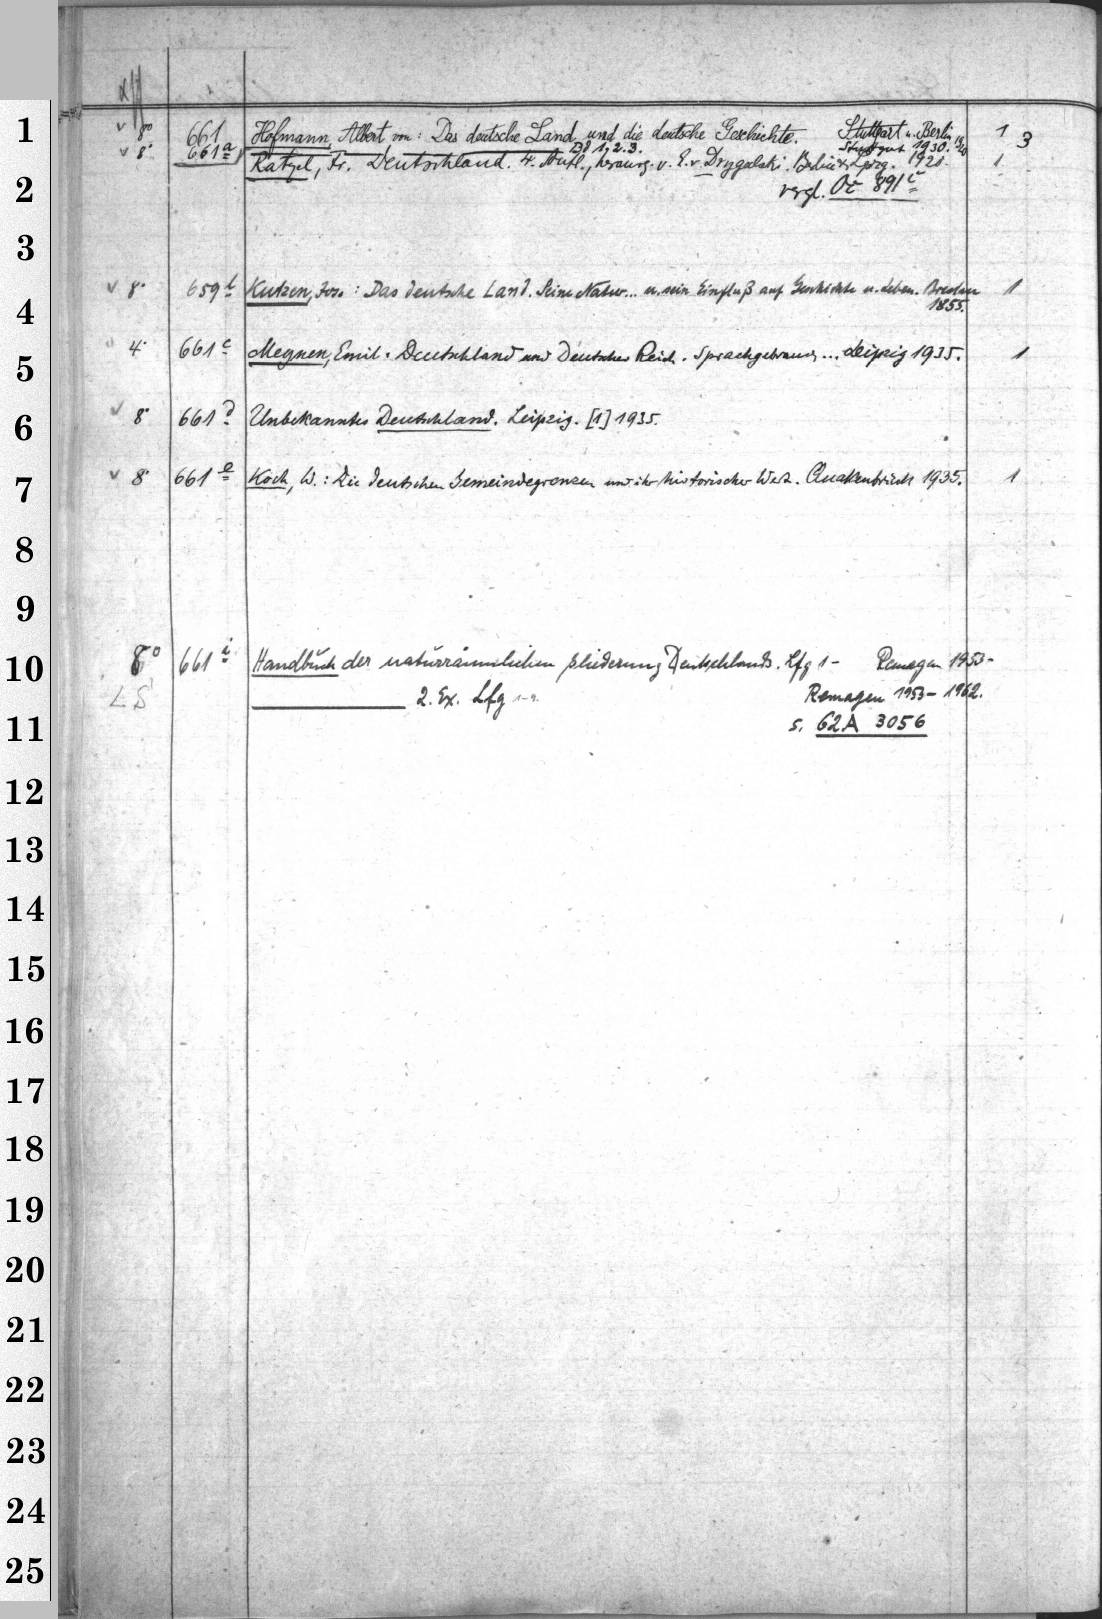 1
v 8° 661 Hofmann, Albert von: Das deutsche Land und die deutsche Geschichte. Stuttgart u. Berlin 1930. 1 3
Bd 1, 2. 3. Stuttgart 1920
v 8° 661a Ratzel, Fr. Deutschland. 4. Aufl., herausg. v. E. v. Drygalski. Berlin 1921 1
2
vergl. Oc 891c
3
v 8° 659b Kutzen, Jos.: Das deutsche Land. Seine Natur... u. sein Einfluß auf Geschichte u. Leben. Breslau 1
4
1855.
4° 661c Meynen, Emil: Deutschland und Deutsches Reich. Sprachgebrauch... Leipzig 1935. 1
5
v 8° 661d Unbekanntes Deutschland. Leipzig. [1] 1935.
6
v 8° 661e Koch, W.: Die deutschen Gemeindegrenzen und ihr historischer Wert. Quakenbrück 1935. 1
7
8
9
10
8° 661i Handbuch der naturräumlichen Gliederung Deutschlands. Lfg 1- Remagen 1953-
LS 2. Ex. Lfg 1-9. Remagen 1953-1962.
11
s. 62A 3056
12
13
14
15
16
17
18
19
20
21
22
23
24
25